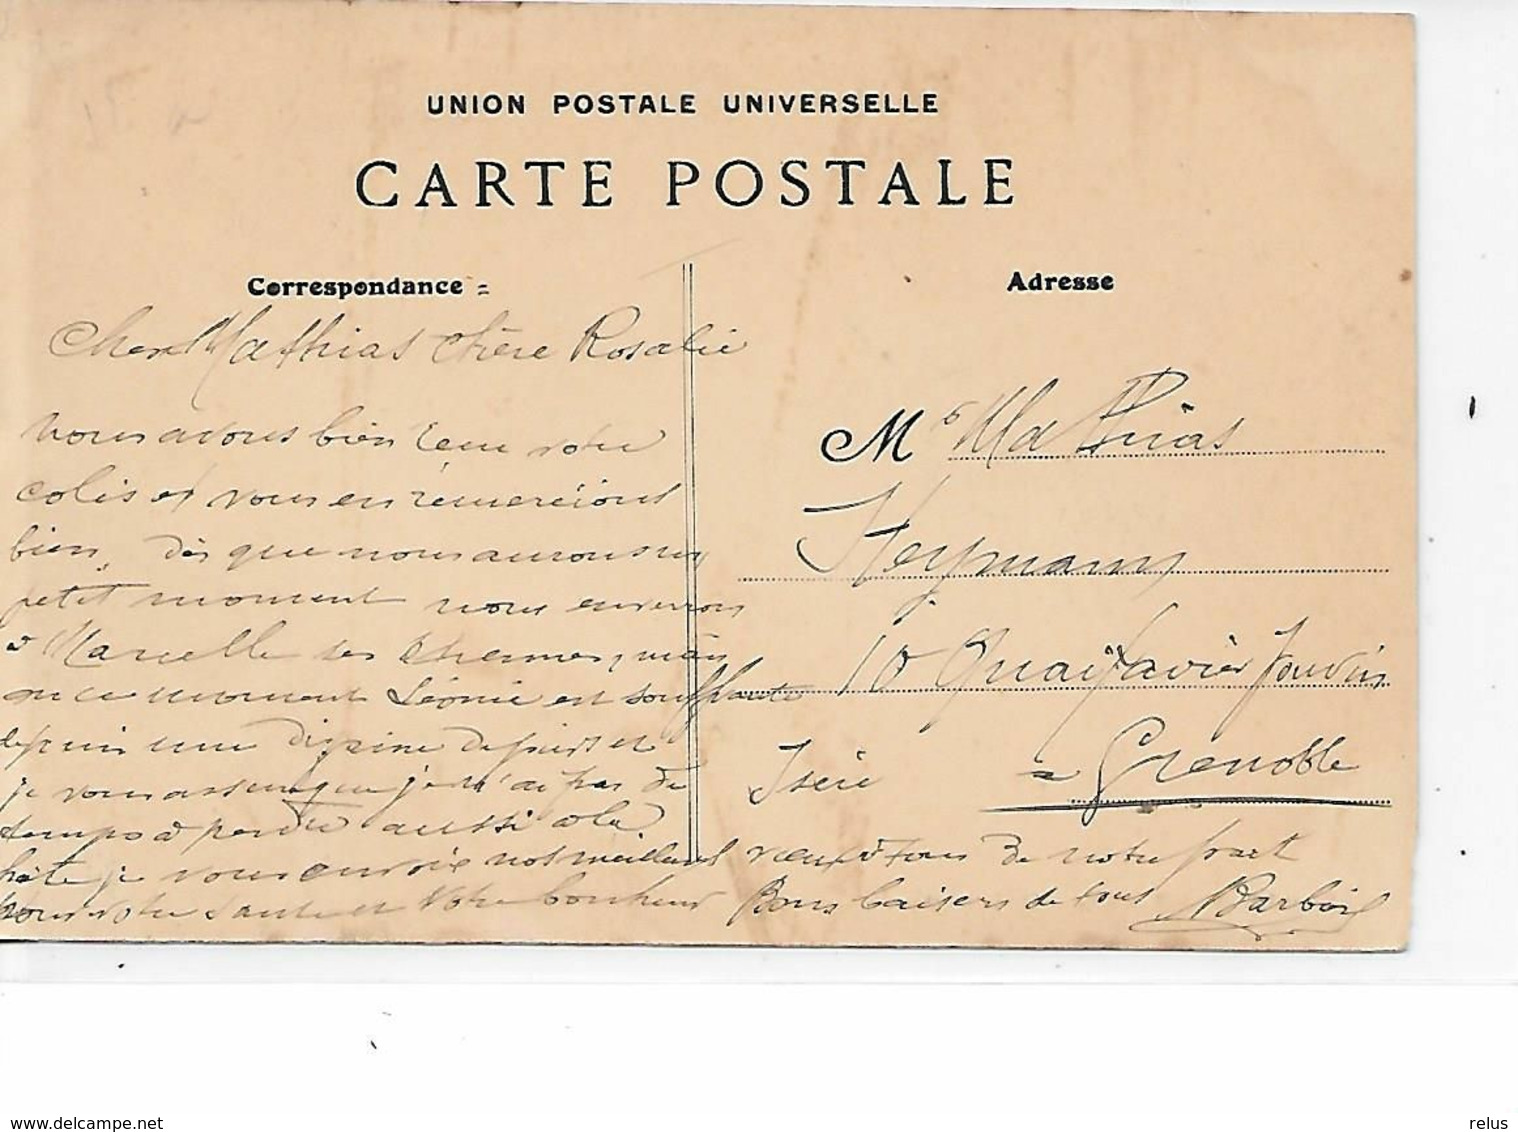 UNION POSTALE UNIVERSELLE
CARTE POSTALE
Correspondance =
Adresse
Cher Mathias chère Rosalie
nous avons bien reçu votre
colis et vous en remercions
bien, dès que nous aurons un
petit moment nous enverrons
à Marcelle ses étrennes, mais
en ce moment Léonie est souffrante
depuis une dizaine de jours et
je vous assure que je n'ai pas de
temps à perdre aussi à la
hâte je vous envoie nos meilleurs vœux à tous de notre part
pour votre santé et votre bonheur Bons baisers de tous
M Mathias
Heymann
10 Quai Xavier Jouvin
Isère = Grenoble
www.delcampe.net
relus